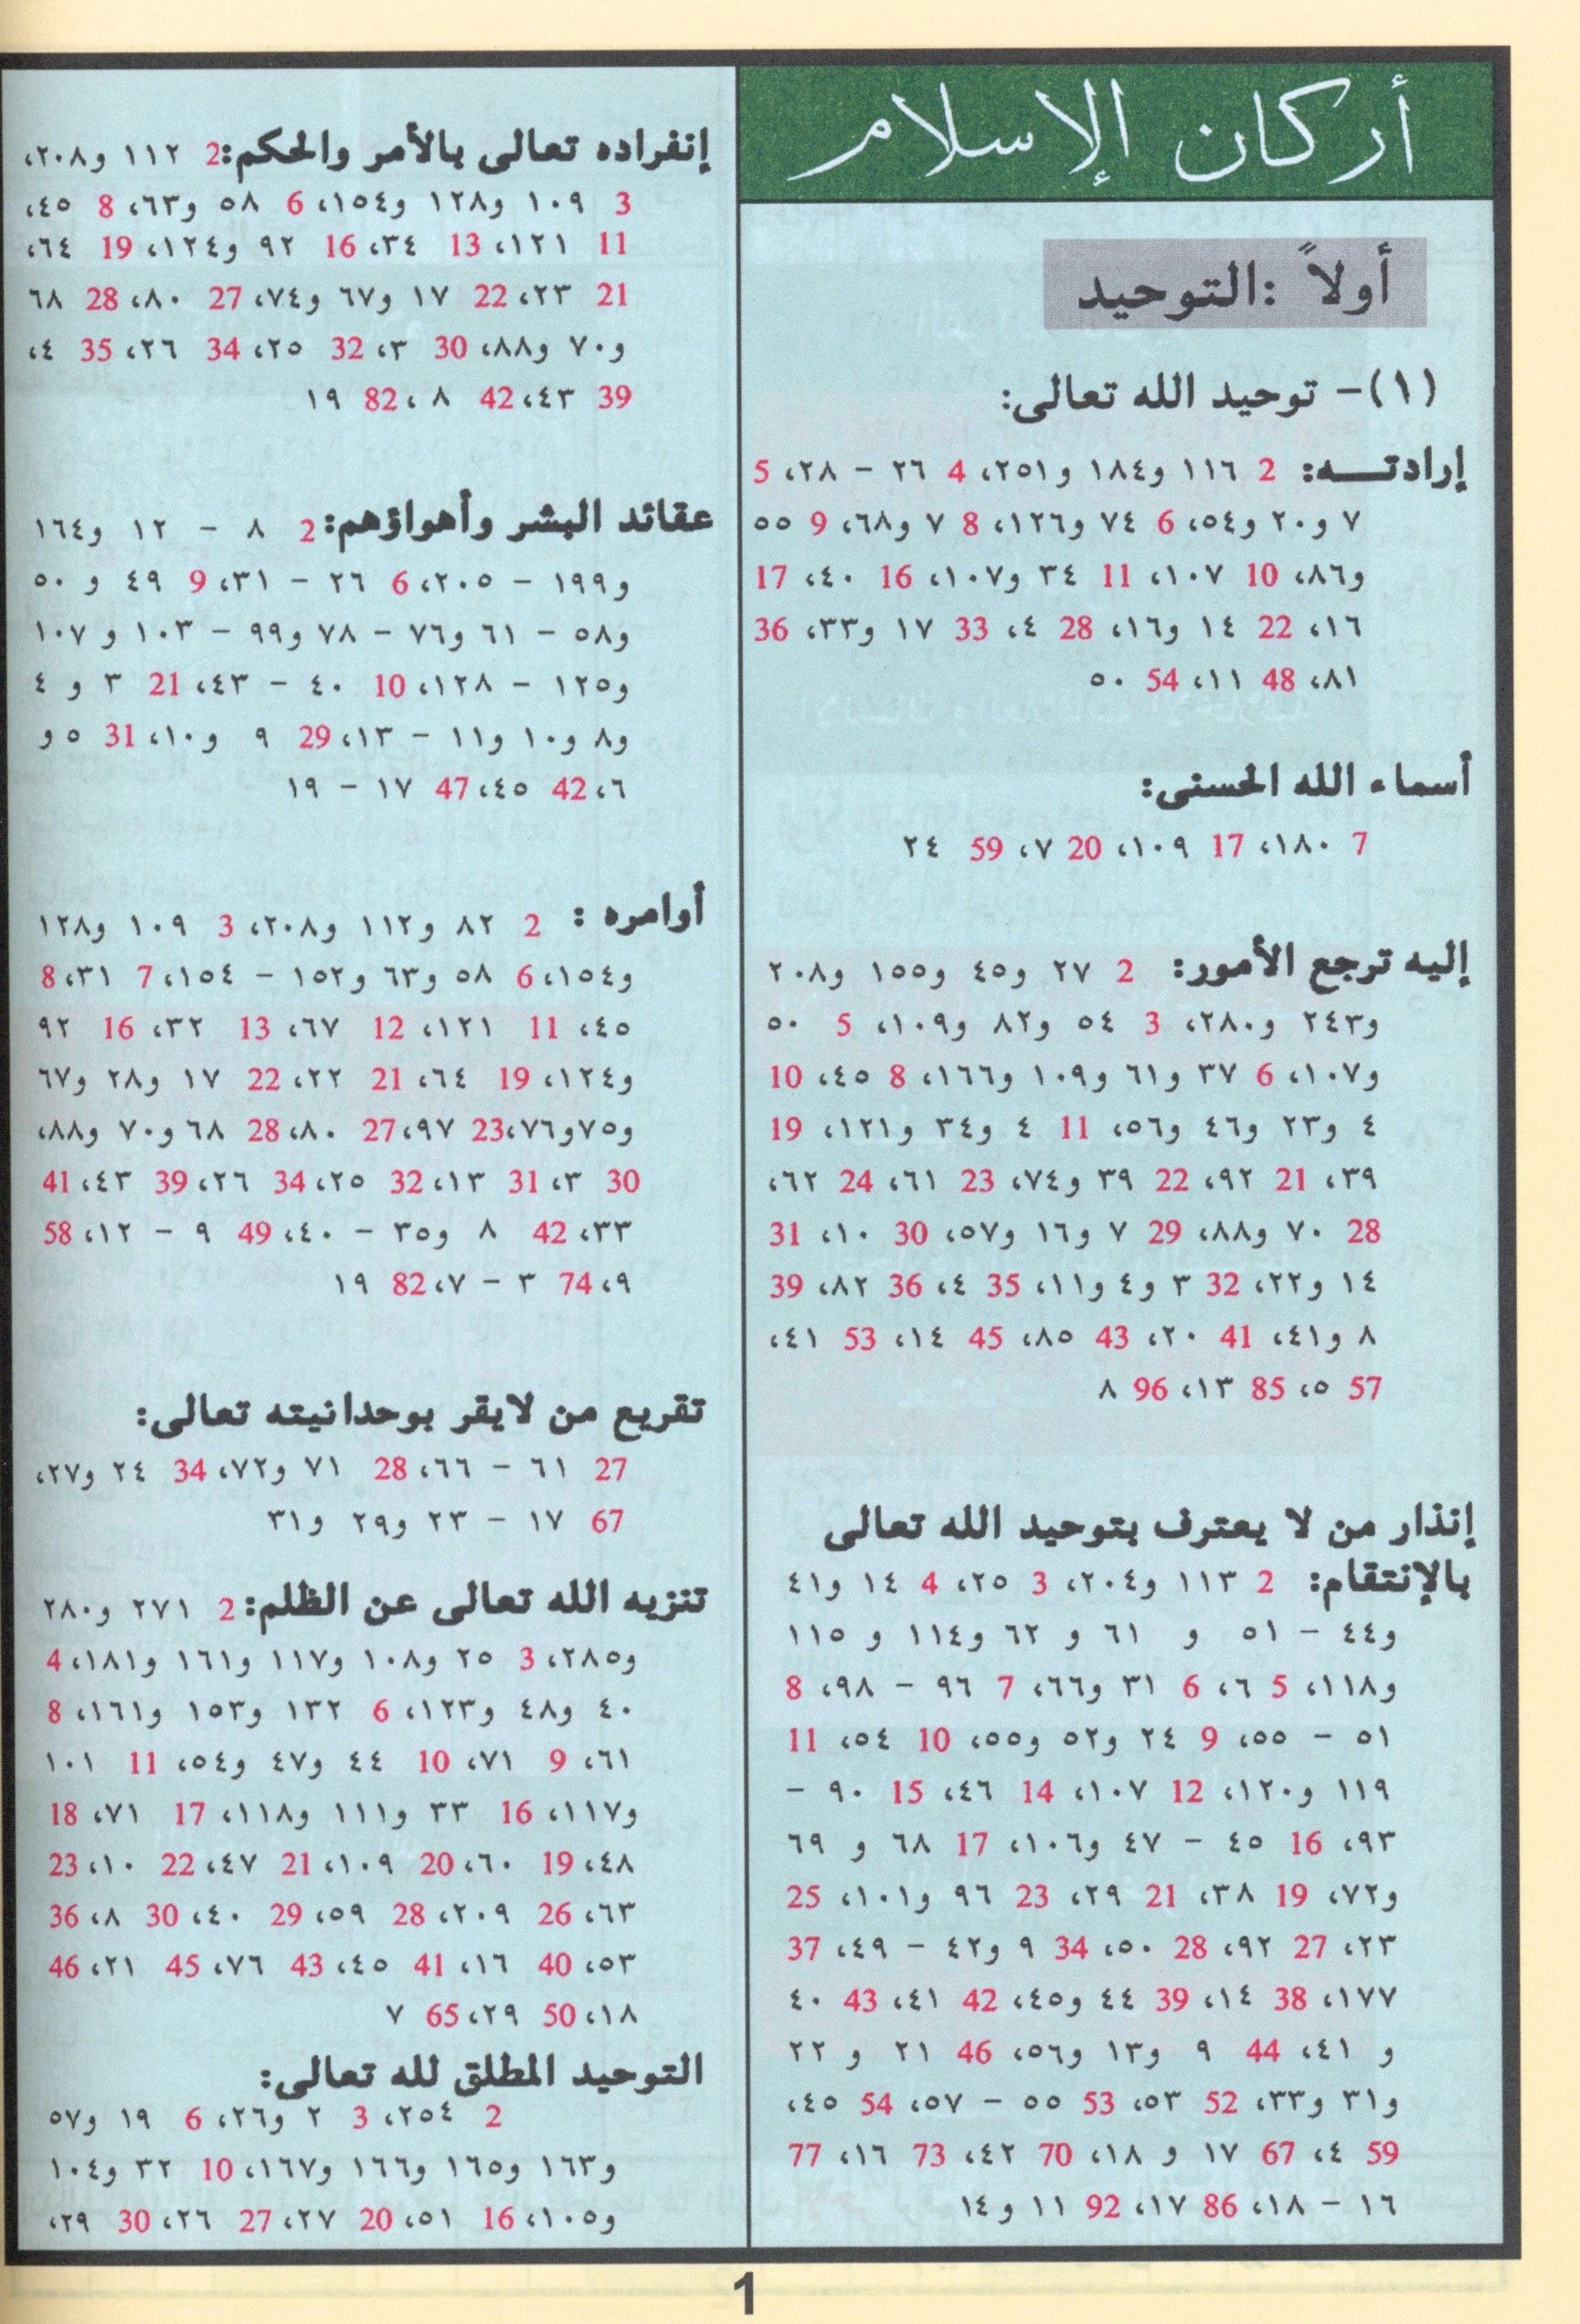 أركان الإسلام
أولاً :التوحيد
(١)- توحيد الله تعالى:
إرادتـــه: 2 ١١٦ و١٨٤ و٢٥١، 4 ٢٦ - ٢٨، 5
٧ و٢٠ و٥٤، 6 ٧٤ و١٢٦، 8 ٧ و٦٨، 9 ٥٥
و٨٦، 10 ١٠٧، 11 ٣٤ و١٠٧، 16 ٤٠، 17
١٦، 22 ١٤ و١٦، 28 ٤، 33 ١٧ و٣٣، 36
٨١، 48 ١١، 54 ٥٠
أسماء الله الحسنى:
7 ١٨٠، 17 ١٠٩، 20 ٧، 59 ٢٤
إليه ترجع الأمور: 2 ٢٧ و٤٥ و١٥٥ و٢٠٨
و٢٤٣ و٢٨٠، 3 ٥٤ و٨٢ و١٠٩، 5 ٥٠
و١٠٧، 6 ٣٧ و٦١ و١٠٩ و١٦٦، 8 ٤٥، 10
٤ و٢٣ و٤٦ و٥٦، 11 ٤ و٣٤ و١٢١، 19
٣٩، 21 ٩٢، 22 ٣٩ و٧٤، 23 ٦١، 24 ٦٢،
28 ٧٠ و٨٨، 29 ٧ و١٦ و٥٧، 30 ١٠، 31
١٤ و٢٢، 32 ٣ و٤ و١١، 35 ٤، 36 ٨٢، 39
٨ و٤١، 41 ٢٠، 43 ٨٥، 45 ١٤، 53 ٤١،
57 ٥، 85 ١٣، 96 ٨
إنذار من لا يعترف بتوحيد الله تعالى
بالإنتقام: 2 ١١٣ و٢٠٤، 3 ٢٥، 4 ١٤ و٤١
و٤٤ - ٥١ و ٦١ و ٦٢ و١١٤ و ١١٥
و١١٨، 5 ٦، 6 ٣١ و٦٦، 7 ٩٦ - ٩٨، 8
٥١ - ٥٥، 9 ٢٤ و٥٢ و٥٥، 10 ٥٤، 11
١١٩ و١٢٠، 12 ١٠٧، 14 ٤٦، 15 ٩٠ -
٩٣، 16 ٤٥ - ٤٧ و١٠٦، 17 ٦٨ و ٦٩
و٧٢، 19 ٣٨، 21 ٢٩، 23 ٩٦ و١٠١، 25
٢٣، 27 ٩٢، 28 ٥٠، 34 ٩ و٤٢ - ٤٩، 37
١٧٧، 38 ١٤، 39 ٤٤ و٤٥، 42 ٤١، 43 ٤٠
و ٤١، 44 ٩ و١٣ و٥٦، 46 ٢١ و ٢٢
و٣١ و٣٣، 52 ٥٣، 53 ٥٥ - ٥٧، 54 ٤٥،
59 ٤، 67 ١٧ و ١٨، 70 ٤٢، 73 ١٦، 77
١٦ - ١٨، 86 ١٧، 92 ١١ و١٤
إنفراده تعالى بالأمر والحكم:2 ١١٢ و٢٠٨،
3 ١٠٩ و١٢٨ و١٥٤، 6 ٥٨ و٦٣، 8 ٤٥،
11 ١٢١، 13 ٣٤، 16 ٩٢ و١٢٤، 19 ٦٤،
21 ٢٣، 22 ١٧ و٦٧ و٧٤، 27 ٨٠، 28 ٦٨
و٧٠ و٨٨، 30 ٣، 32 ٢٥، 34 ٢٦، 35 ٤،
39 ٤٣، 42 ٨ ، 82 ١٩
عقائد البشر وأهواؤهم:2 ٨ - ١٢ و١٦٤
و١٩٩ - ٢٠٥، 6 ٢٦ - ٣١، 9 ٤٩ و ٥٠
و٥٨ - ٦١ و٧٦ - ٧٨ و٩٩ - ١٠٣ و ١٠٧
و١٢٥ - ١٢٨، 10 ٤٠ - ٤٣، 21 ٣ و ٤
و٨ و١٠ و١١ - ١٣، 29 ٩ و١٠، 31 ٥ و
٦، 42 ٤٥، 47 ١٧ - ١٩
أوامره : 2 ٨٢ و١١٢ و٢٠٨، 3 ١٠٩ و١٢٨
و١٥٤، 6 ٥٨ و٦٣ و١٥٢ - ١٥٤، 7 ٣١، 8
٤٥، 11 ١٢١، 12 ٦٧، 13 ٣٢، 16 ٩٢
و١٢٤، 19 ٦٤، 21 ٢٢، 22 ١٧ و٢٨ و٦٧
و٧٥ و٧٦، 23 ٩٧، 27 ٨٠، 28 ٦٨ و٧٠ و٨٨،
30 ٣، 31 ١٣، 32 ٢٥، 34 ٢٦، 39 ٤٣، 41
٣٣، 42 ٨ و٣٥ - ٤٠، 49 ٩ - ١٢، 58
٩، 74 ٣ - ٧، 82 ١٩
تقريع من لايقر بوحدانيته تعالى:
27 ٦١ - ٦٦، 28 ٧١ و٧٢، 34 ٢٤ و٢٧،
67 ١٧ - ٢٣ و٢٩ و٣١
تنزيه الله تعالى عن الظلم:2 ٢٧١ و٢٨٠
و٢٨٥، 3 ٢٥ و١٠٨ و١١٧ و١٦١ و١٨١، 4
٤٠ و٤٨ و١٢٣، 6 ١٣٢ و١٥٣ و١٦١، 8
٦١، 9 ٧١، 10 ٤٤ و٤٧ و٥٤، 11 ١٠١
و١١٧، 16 ٣٣ و١١١ و١١٨، 17 ٧١، 18
٤٨، 19 ٦٠، 20 ١٠٩، 21 ٤٧، 22 ١٠، 23
٦٣، 26 ٢٠٩، 28 ٥٩، 29 ٤٠، 30 ٨، 36
٥٣، 40 ١٦، 41 ٤٥، 43 ٧٦، 45 ٢١، 46
١٨، 50 ٢٩، 65 ٧
التوحيد المطلق لله تعالى:
2 ٢٥٤، 3 ٢ و٢٦، 6 ١٩ و٥٧
و١٦٣ و١٦٥ و١٦٦ و١٦٧، 10 ٣٢ و١٠٤
و١٠٥، 16 ٥١، 20 ٢٧، 27 ٢٦، 30 ٢٩،
1